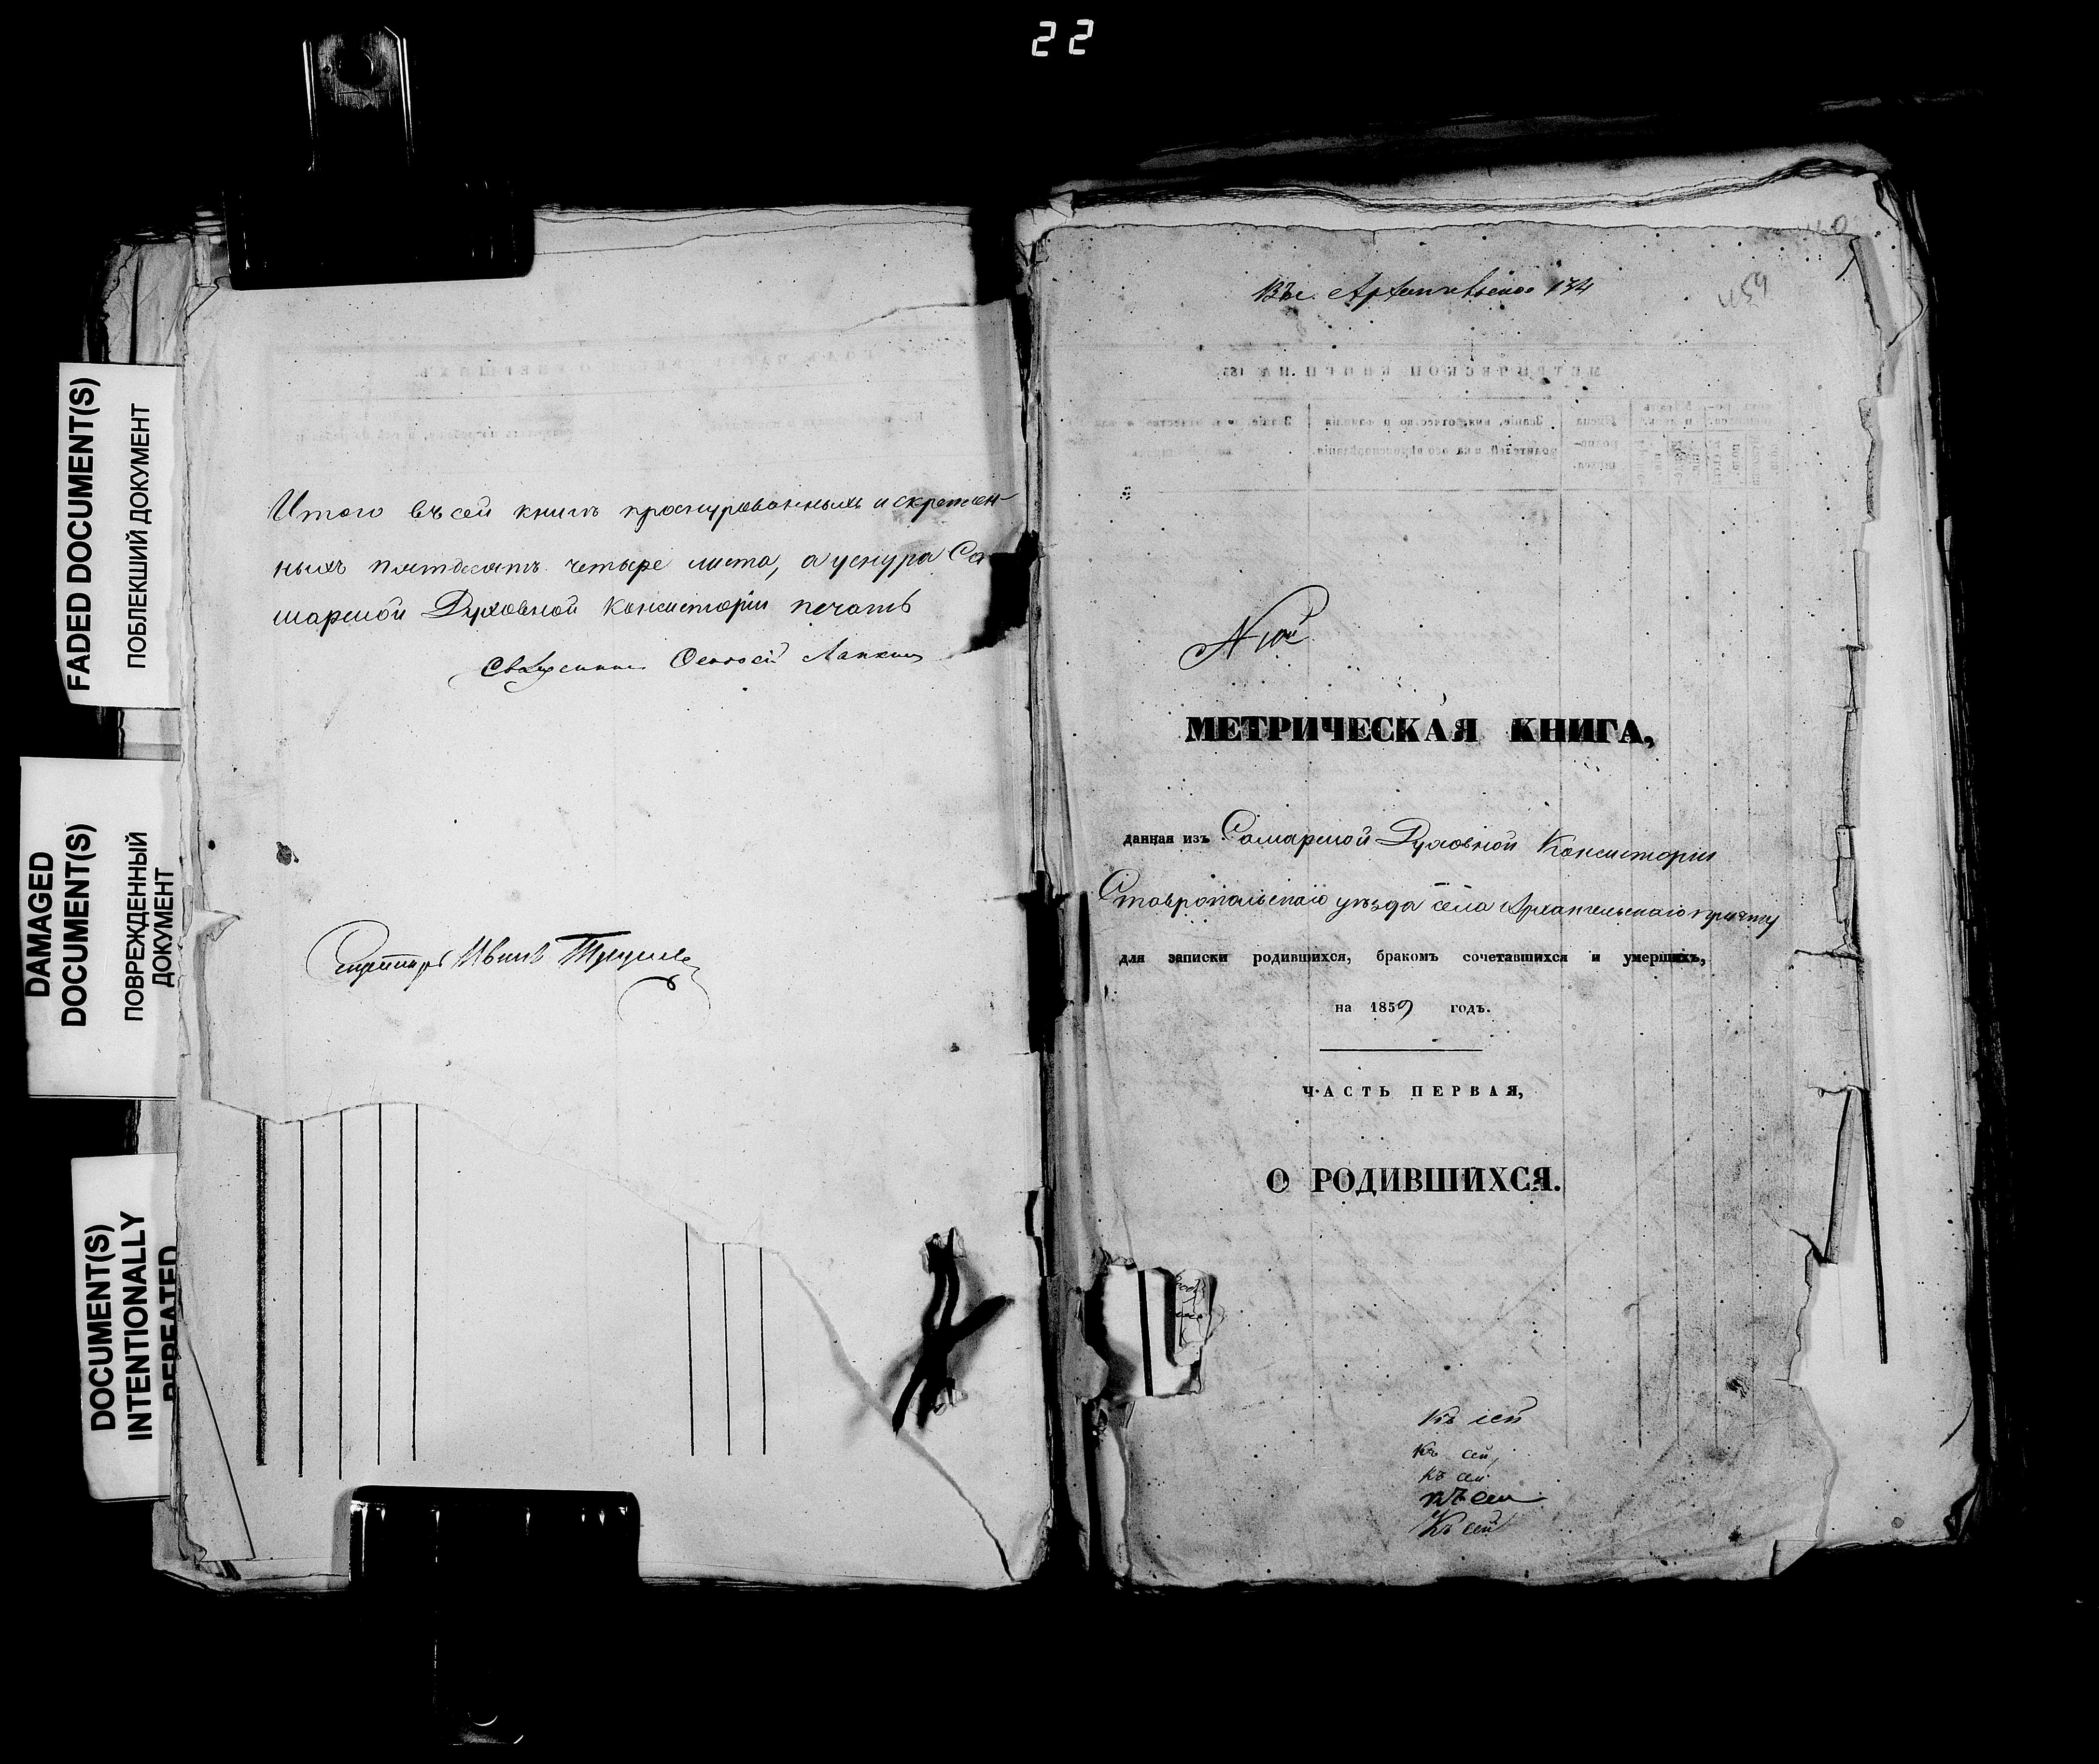 22
FADED DOCUMENT(S)
ПОБЛЕКШИЙ ДОКУМЕНТ
DAMAGED
DOCUMENT(S)
ПОВРЕЖДЕННЫЙ
ДОКУМЕНТ
DOCUMENT(S)
INTENTIONALLY
REPEATED
Итого въ сей книгѣ прошнурованныхъ и скрѣплен-
ныхъ пятьдесятъ четыре листа, а у снура Са-
марской Духовной Консисторіи печать
Священникъ
Секретарь Иванъ
134
459
МЕТРИЧЕСКАЯ КНИГА,
данная изъ Самарской Духовной Консисторіи
Ставропольскаго уѣзда села Архангельскаго причту
для записки родившихся, бракомъ сочетавшихся и умершихъ,
на 1859 годъ.
ЧАСТЬ ПЕРВАЯ,
О РОДИВШИХСЯ.
Къ сей
Къ сей
Къ сей
Къ сей
Къ сей